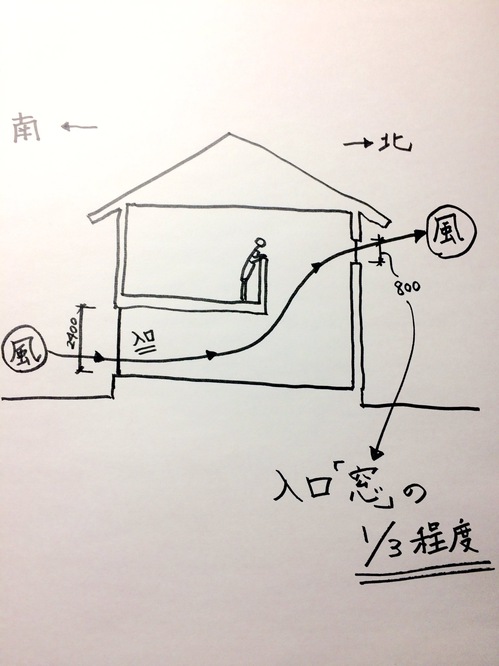 南 ←
→ 北
風
800
2400
入口
風
入口「窓」の
1/3 程度